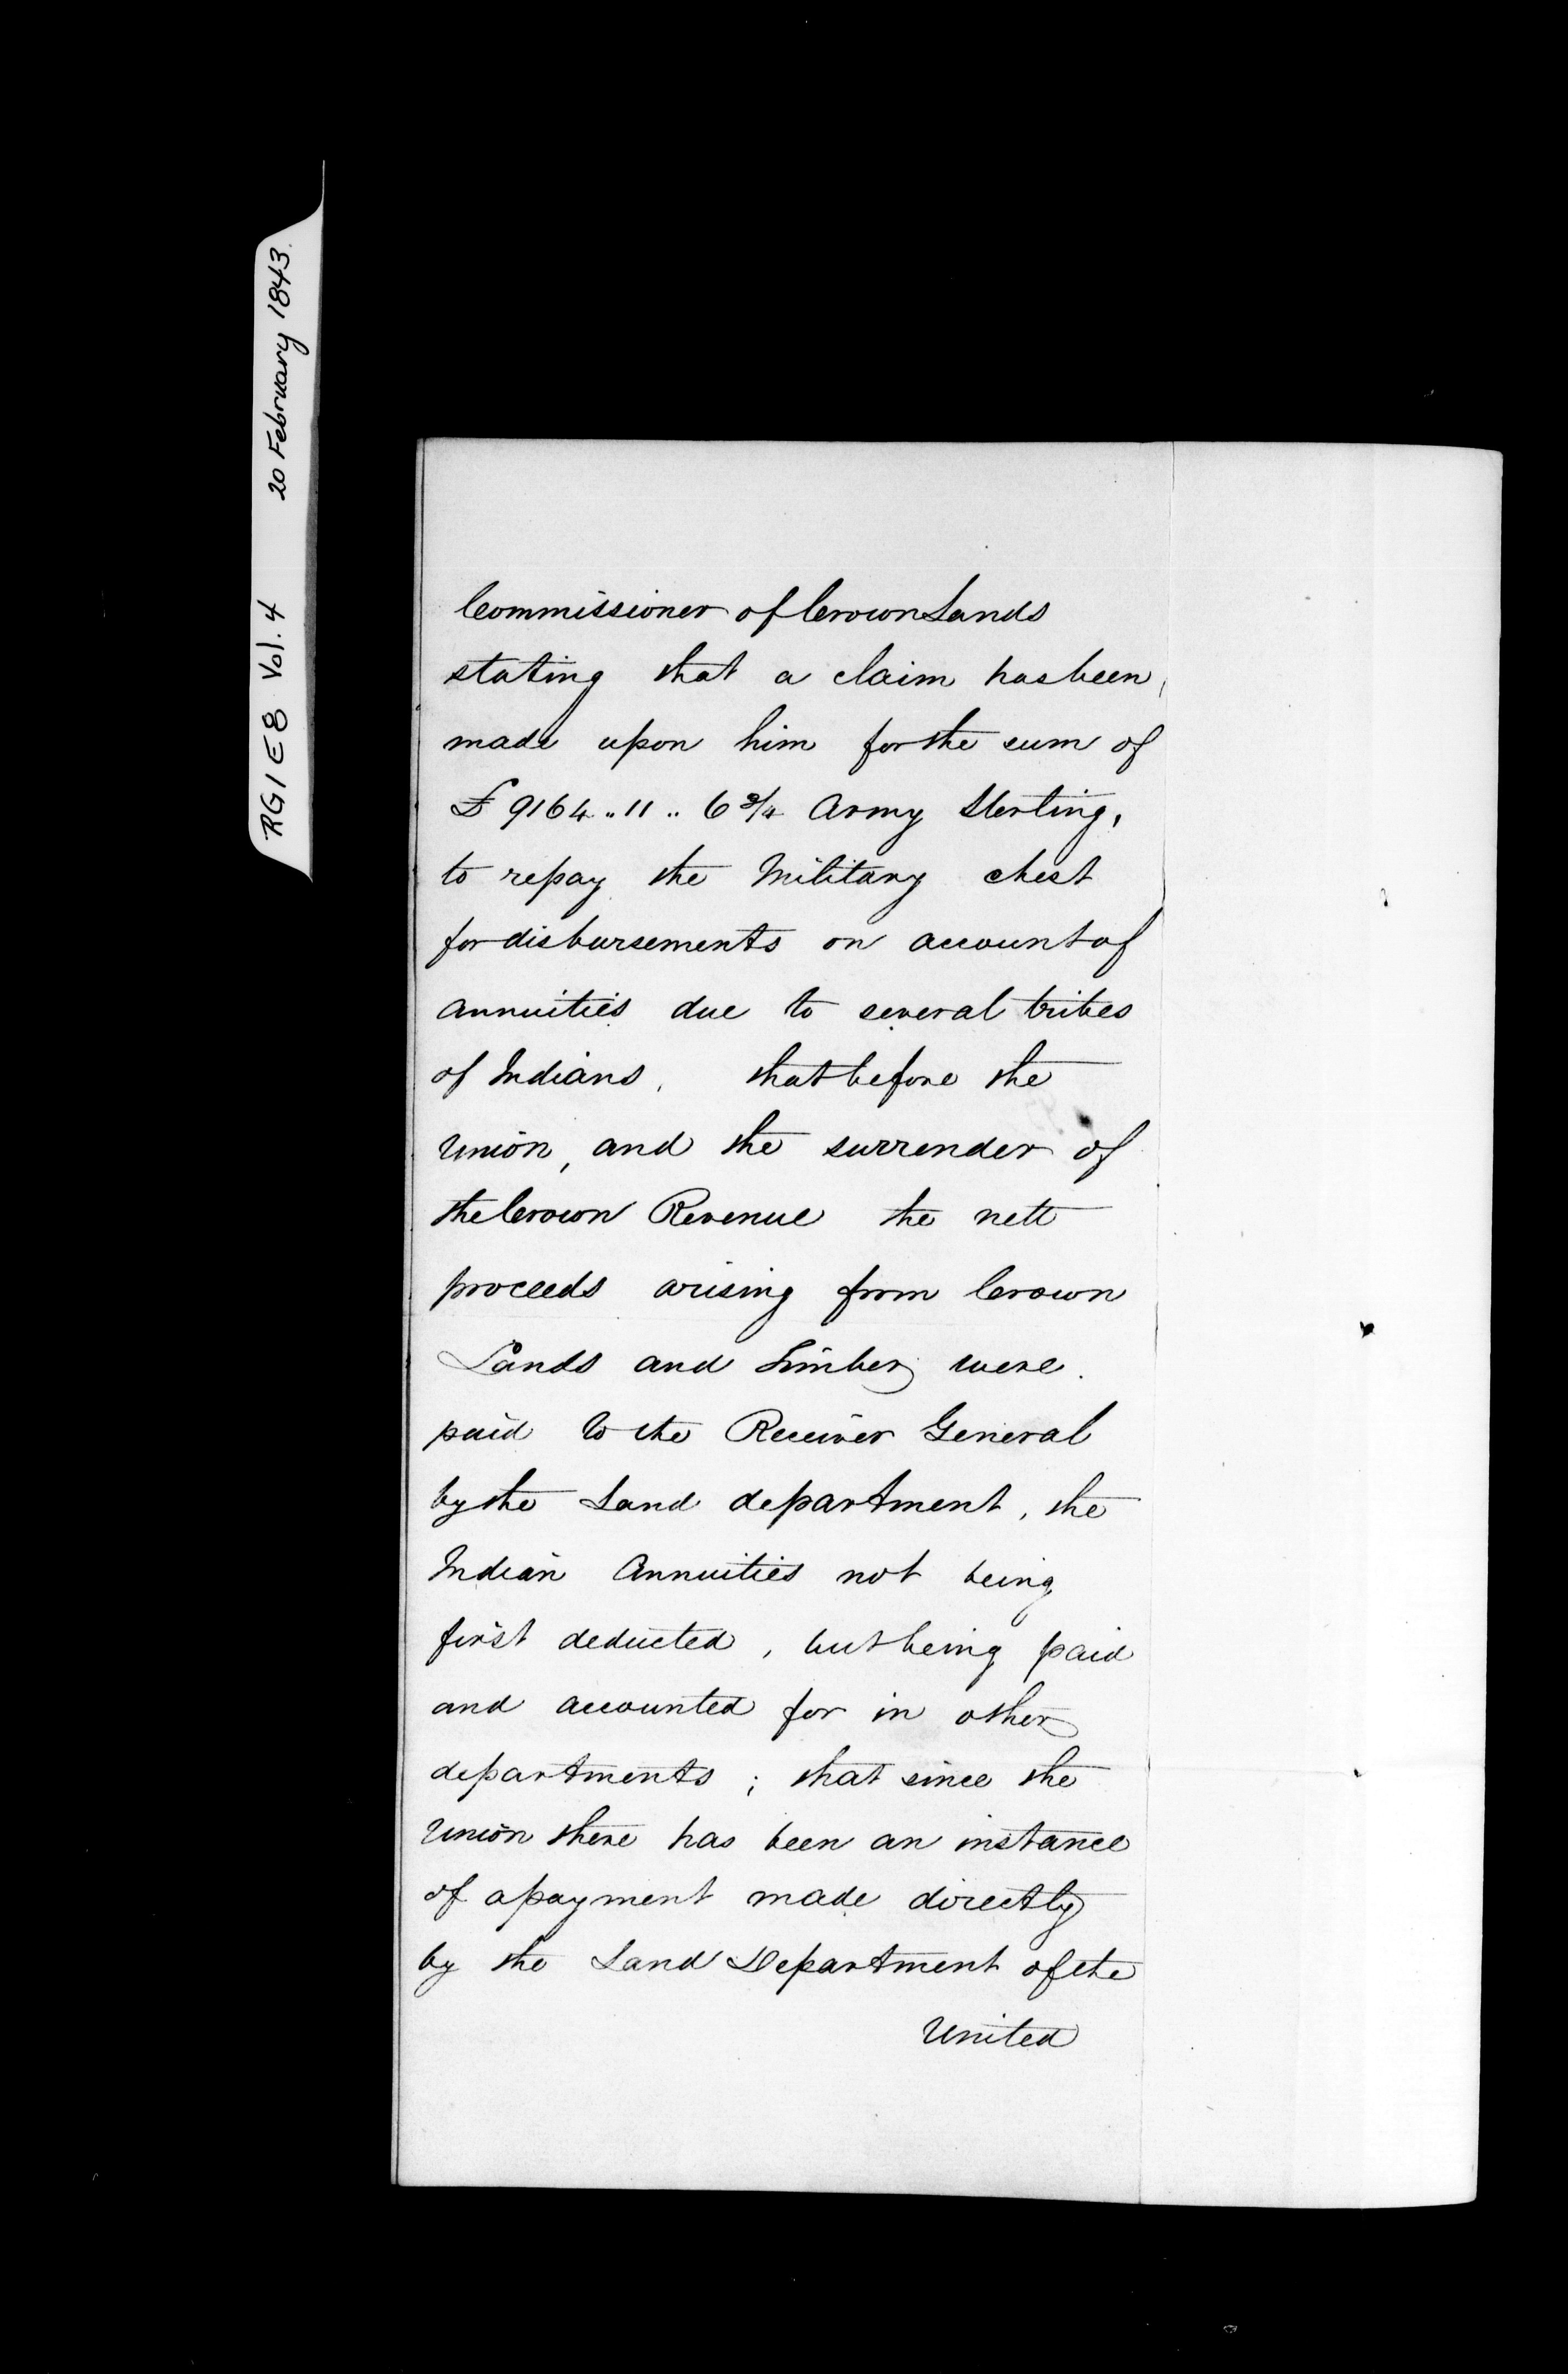 RG1 E8 Vol. 4 20 February 1843.
Commissioner of Crown Lands
stating that a claim has been
made upon him for the sum of
£ 9164 .. 11 .. 6 3/4 Army Sterling,
to repay the Military chest
for disbursements on account of
Annuities due to several tribes
of Indians, that before the
Union, and the surrender of
the Crown Revenue the nett
proceeds arising from Crown
Lands and Timber were
paid to the Receiver General
by the Land department, the
Indian Annuities not being
first deducted, but being paid
and accounted for in other
departments; that since the
Union there has been an instance
of a payment made directly
by the Land Department of the
United